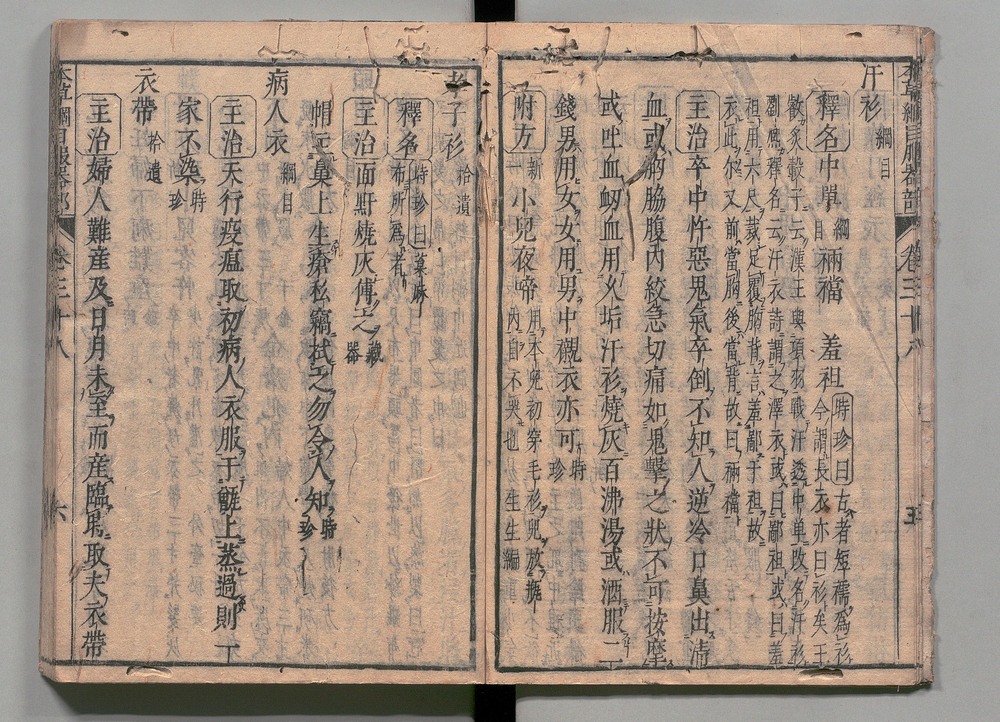 本草綱目服器部 卷三十八 五
汗衫 綱目
釋名中單綱目裲襠 羞袒時珍曰古者短襦爲衫
今謂長衣亦曰衫矣王
叡炙轂子云漢王與項羽戰汗透中单改名汗衫
劉熙釋名云汗衣詩謂之澤衣或曰鄙袒或曰羞
袒用六尺裁足覆胸背言羞鄙于袒故
衣此尔又前當胸後當背故曰裲襠
主治卒中忤惡鬼氣卒倒不知人逆冷口鼻出清
血或胸脇腹内絞急切痛如鬼擊之狀不可按摩
或吐血衂血用久垢汗衫燒灰百沸湯或酒服二
錢男用女女用男中襯衣亦可時珍
附方新一小兒夜啼用本兒初穿毛衫兒放瓶
内自不哭也 生生編
孝子衫 拾遺
釋名時珍曰蔴
布所爲者
主治面䵟燒灰傅之藏器
帽主鼻上生瘡私竊拭之勿令人知時珍
病人衣 綱目
主治天行疫瘟取初病人衣服于甑上蒸過則一
家不染時珍
衣帶 拾遺
主治婦人難産及日月未至而産臨時取夫衣帶
本草綱目服器部 卷三十八 六